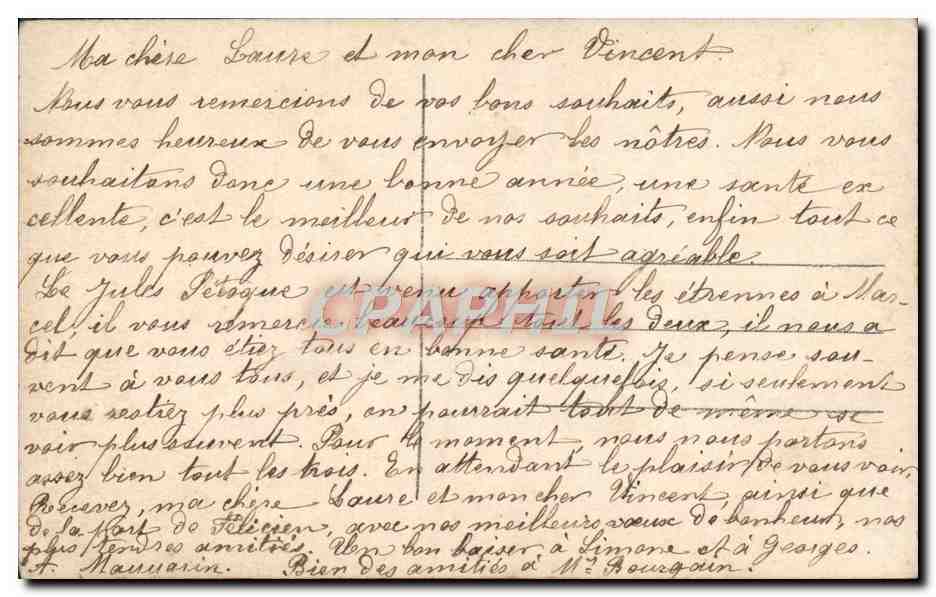 Ma chère Laure et mon cher Vincent.
Nous vous remercions de vos bons souhaits, aussi nous
sommes heureux de vous envoyer les nôtres. Nous vous
souhaitons donc une bonne année, une santé ex
cellente, c'est le meilleur de nos souhaits, enfin tout ce
que vous pouvez désirer qui vous soit agréable.
Le Jules est venu apporter les étrennes à Mar-
cel, il vous remercie beaucoup tous les deux, il nous a
dit que vous étiez tous en bonne santé. Je pense sou-
vent à vous tous, et je me dis quelquefois, si seulement
vous restiez plus près, on pourrait tout de même se
voir plus souvent. Pour le moment, nous nous portons
assez bien tout les trois. En attendant le plaisir de vous voir,
Recevez, ma chère Laure et mon cher Vincent ainsi que
de la part de Félicien, avec nos meilleurs vœux de bonheur, nos
plus tendres amitiés. Un bon baiser à Simone et à Georges.
A. Bien des amitiés à Mr Bourgain.
CPAPHIL